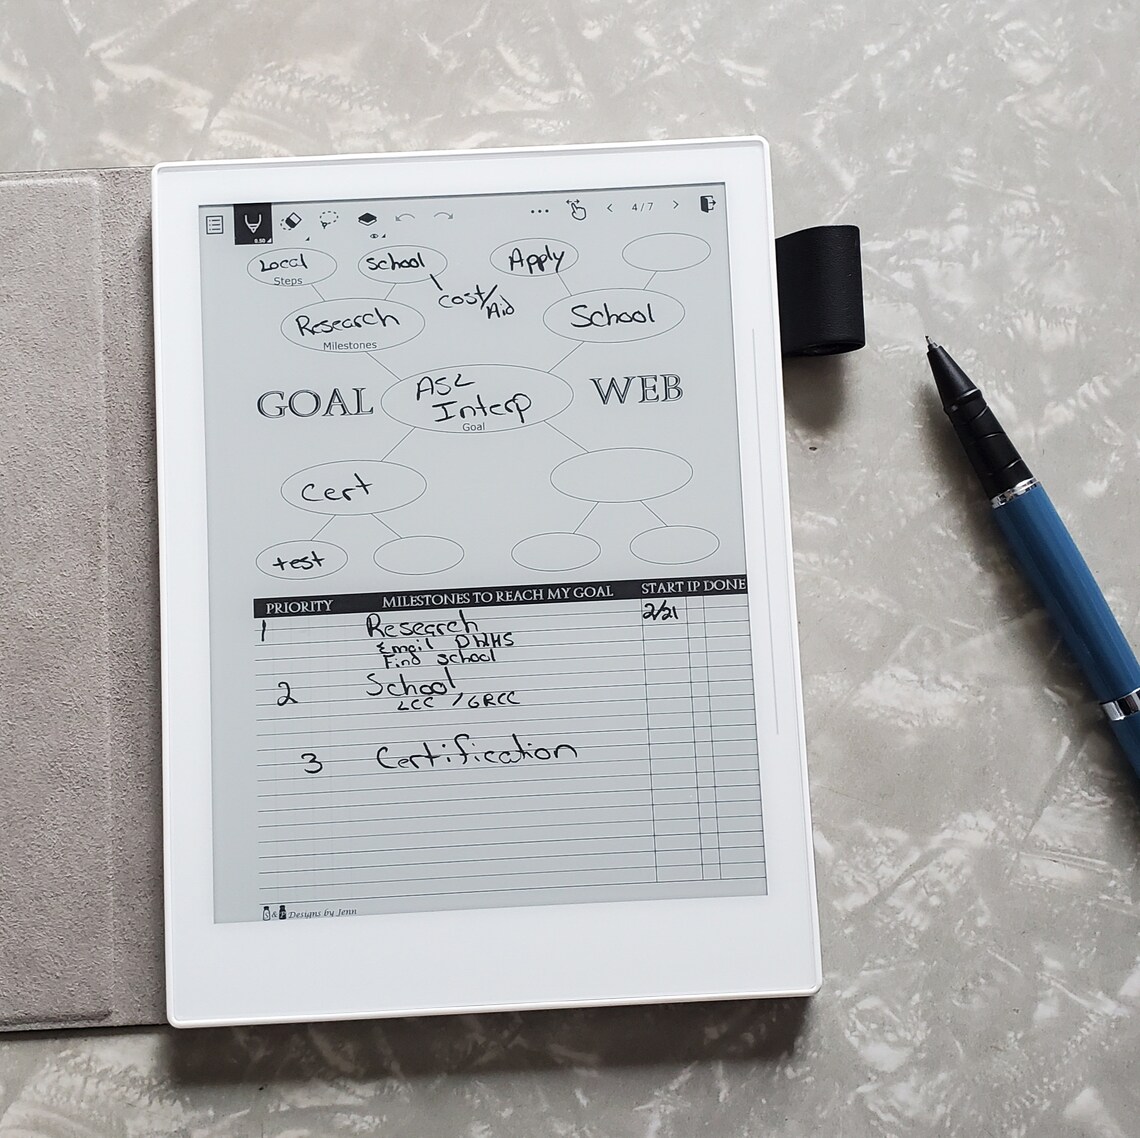 0.50
4/7
Local
Steps
School
Apply
Cost/Aid
Research
Milestones
School
GOAL
ASL
Interp
Goal
WEB
Cert
test
PRIORITY MILESTONES TO REACH MY GOAL START IP DONE
1 Research 2/21
Email DHHS
Find school
2 School
LCC / GRCC
3 Certification
S & P Designs by Jenn